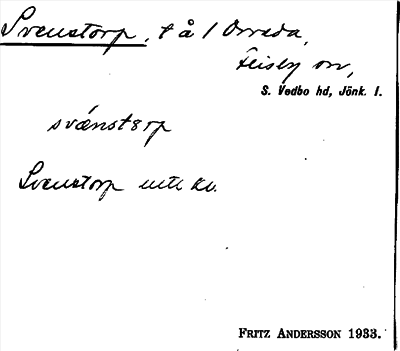 Svenstorp, t å 1 Orreda,
Flisby sn,
S. Vedbo hd, Jönk. l.
svánstɜrp
Svenstorp inte kv.
FRITZ ANDERSSON 1933.